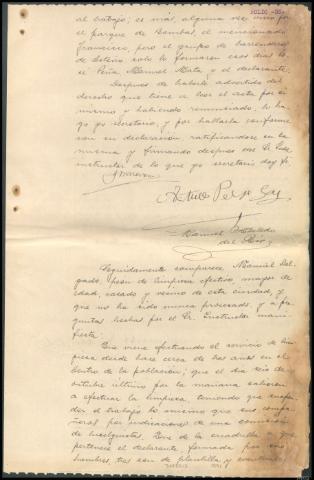 FOLIO -86-
al trabajo; es más, alguna vez vino por
el parque de Bombas el mencionado
Francisco, pero el grupo de barrenderos
de retén solo lo formaron esos días
el Peña, Manuel Mata, y el declarante.
Después de haberle advertido del
derecho que tiene a leer el acta por si
mismo y habiendo renunciado, lo ha-
go yo secretario, y por hallarla conforme
con su declaración ratificándose en la
misma y firmando después con Sr. Juez
instructor de lo que yo secretario doy fe.
Manuel
del
Seguidamente comparece Manuel Del-
gado, peon de limpieza efectivo, mayor de
edad, casado y vecino de esta ciudad, y
que no ha sido nunca procesado y a pre-
guntas hechas por el Sr. Instructor mani-
fiesta:
Que viene efectuando el servicio de lim-
pieza desde hace cerca de dos años en el
centro de la población; que el día seis de
octubre último por la mañana salieron
a efectuar la limpieza, teniendo que suspen-
der el trabajo lo mismo que sus compa-
ñeros por indicaciones de una comisión
de huelguistas. Que de la cuadrilla a que
pertenece el declarante formada por
hombres, tres son de plantilla y